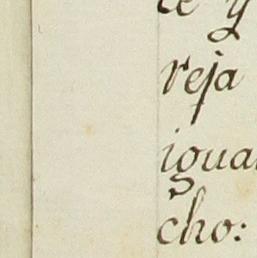 te y
reja
igua
cho: